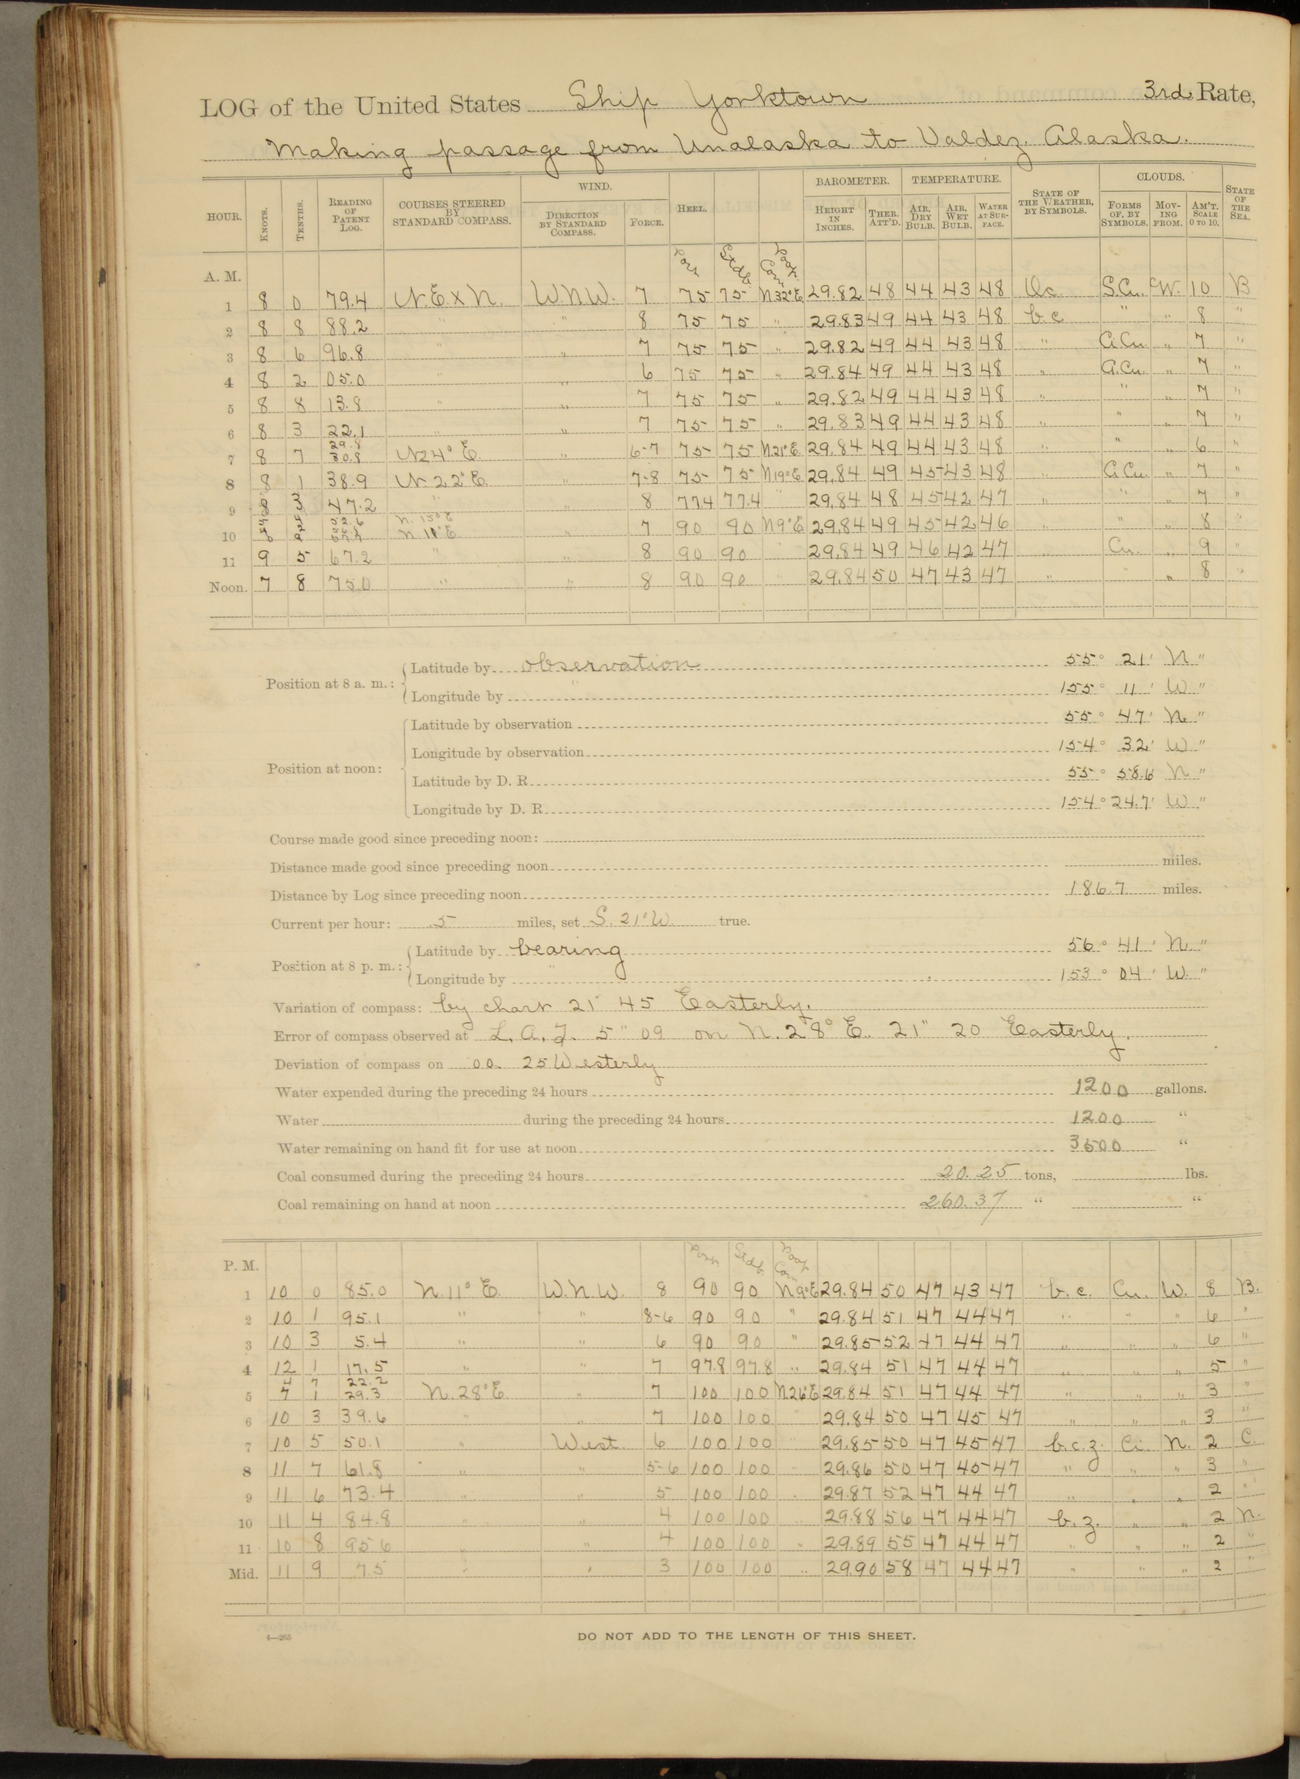 LOG of the United States Ship Yorktown 3rd Rate,
Making passage from Unalaska to Valdez, Alaska.
HOUR. KNOTS. TENTHS. READING OF PATENT LOG. COURSES STEERED BY STANDARD COMPASS. WIND. DIRECTION BY STANDARD COMPASS. FORCE. HEEL. BAROMETER. HEIGHT IN INCHES. THER. ATT'D. TEMPERATURE. AIR, DRY BULB. AIR, WET BULB. WATER AT SURFACE. STATE OF THE WEATHER, BY SYMBOLS. CLOUDS. FORMS OF, BY SYMBOLS. MOVING FROM. AM'T. SCALE 0 TO 10. STATE OF THE SEA.
A. M. Port Stdb Poop Com
1 8 0 79.4 N E x N. W.N.W. 7 75 75 N32°E 29.82 48 44 43 48 Oc S.Cu. W. 10 B
2 8 8 88.2 " " 8 75 75 " 29.83 49 44 43 48 b.c " " 8 "
3 8 6 96.8 " " 7 75 75 " 29.82 49 44 43 48 " A.Cu. " 7 "
4 8 2 05.0 " " 6 75 75 " 29.84 49 44 43 48 " A.Cu. " 7 "
5 8 8 13.8 " " 7 75 75 " 29.82 49 44 43 48 " " " 7 "
6 8 3 22.1 " " 7 75 75 " 29.83 49 44 43 48 " " " 7 "
7 8 7 29.8 30.8 N24°E " 6-7 75 75 N21°E 29.84 49 44 43 48 " " " 6 "
8 8 1 38.9 N.22°E " 7-8 75 75 N19°E 29.84 49 45 43 48 " A Cu. " 7 "
9 8 3 47.2 " " 8 77.4 77.4 29.84 48 45 42 47 " " " 7 "
10 52.6 N. 15°E N 11°E " 7 90 90 N9°E 29.84 49 45 42 46 " " 8 "
11 9 5 67.2 " " 8 90 90 29.84 49 46 42 47 Cu. " 9 "
Noon. 7 8 75.0 " " 8 90 90 29.84 50 47 43 47 " " 8 "
Position at 8 a. m.: Latitude by observation 55° 21' N "
Longitude by " 155° 11' W "
Position at noon: Latitude by observation 55° 47' N "
Longitude by observation 154° 32' W "
Latitude by D. R. 55° 58.6 N "
Longitude by D. R. 154° 24.7' W "
Course made good since preceding noon:
Distance made good since preceding noon miles.
Distance by Log since preceding noon 186.7 miles.
Current per hour: .5 miles, set S. 21°W. true.
Position at 8 p. m.: Latitude by bearing 56° 41' N "
Longitude by " 153° 04' W. "
Variation of compass: by chart 21° 45 Easterly.
Error of compass observed at L.A.T. 5" 09 on N. 28° E. 21" 20 Easterly.
Deviation of compass on 00. 25 Westerly
Water expended during the preceding 24 hours 1200 gallons.
Water during the preceding 24 hours 1200 "
Water remaining on hand fit for use at noon 3500 "
Coal consumed during the preceding 24 hours 20.25 tons, lbs.
Coal remaining on hand at noon 260.37 " "
P. M. Port Stdb Poop Com
1 10 0 85.0 N. 11° E. W.N.W. 8 90 90 N9°E 29.84 50 47 43 47 b.c. Cu. W. 8 B.
2 10 1 95.1 " " 8-6 90 90 " 29.84 51 47 44 47 " " " 6 "
3 10 3 5.4 " " 6 90 90 " 29.85 52 47 44 47 " " " 6 "
4 12 1 17.5 " " 7 97.8 97.8 " 29.84 51 47 44 47 " " " 5 "
5 4 7 7 1 22.2 29.3 N. 28°E. " 7 100 100 N.26°E 29.84 51 47 44 47 " " " 3 "
6 10 3 39.6 " " 7 100 100 29.84 50 47 45 47 " " " 3 "
7 10 5 50.1 " West. 6 100 100 29.85 50 47 45 47 b.c.z. Ci. N. 2 C.
8 11 7 61.8 " " 5-6 100 100 29.86 50 47 45 47 " " " 3 "
9 11 6 73.4 " " 5 100 100 29.87 52 47 44 47 " " " 2 "
10 11 4 84.8 " " 4 100 100 29.88 56 47 44 47 b.z. " " 2 N.
11 10 8 95.6 " " 4 100 100 " 29.89 55 47 44 47 " " " 2 "
Mid. 11 9 7.5 " " 3 100 100 " 29.90 58 47 44 47 " " " 2 "
4—265
DO NOT ADD TO THE LENGTH OF THIS SHEET.